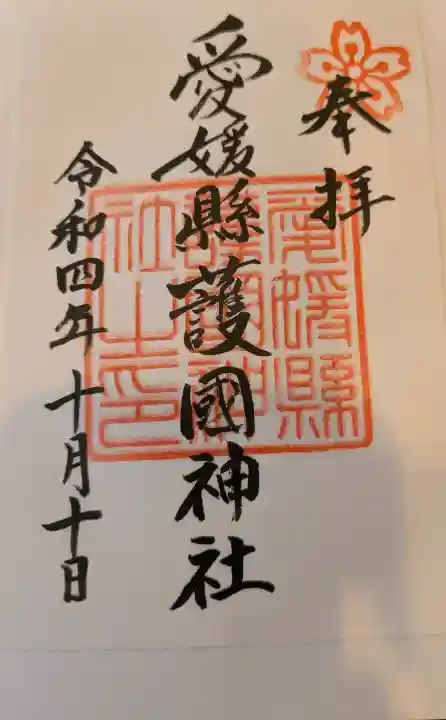 奉拝
愛媛縣護國神社
令和四年十月十日
愛媛縣
護國神
社之印